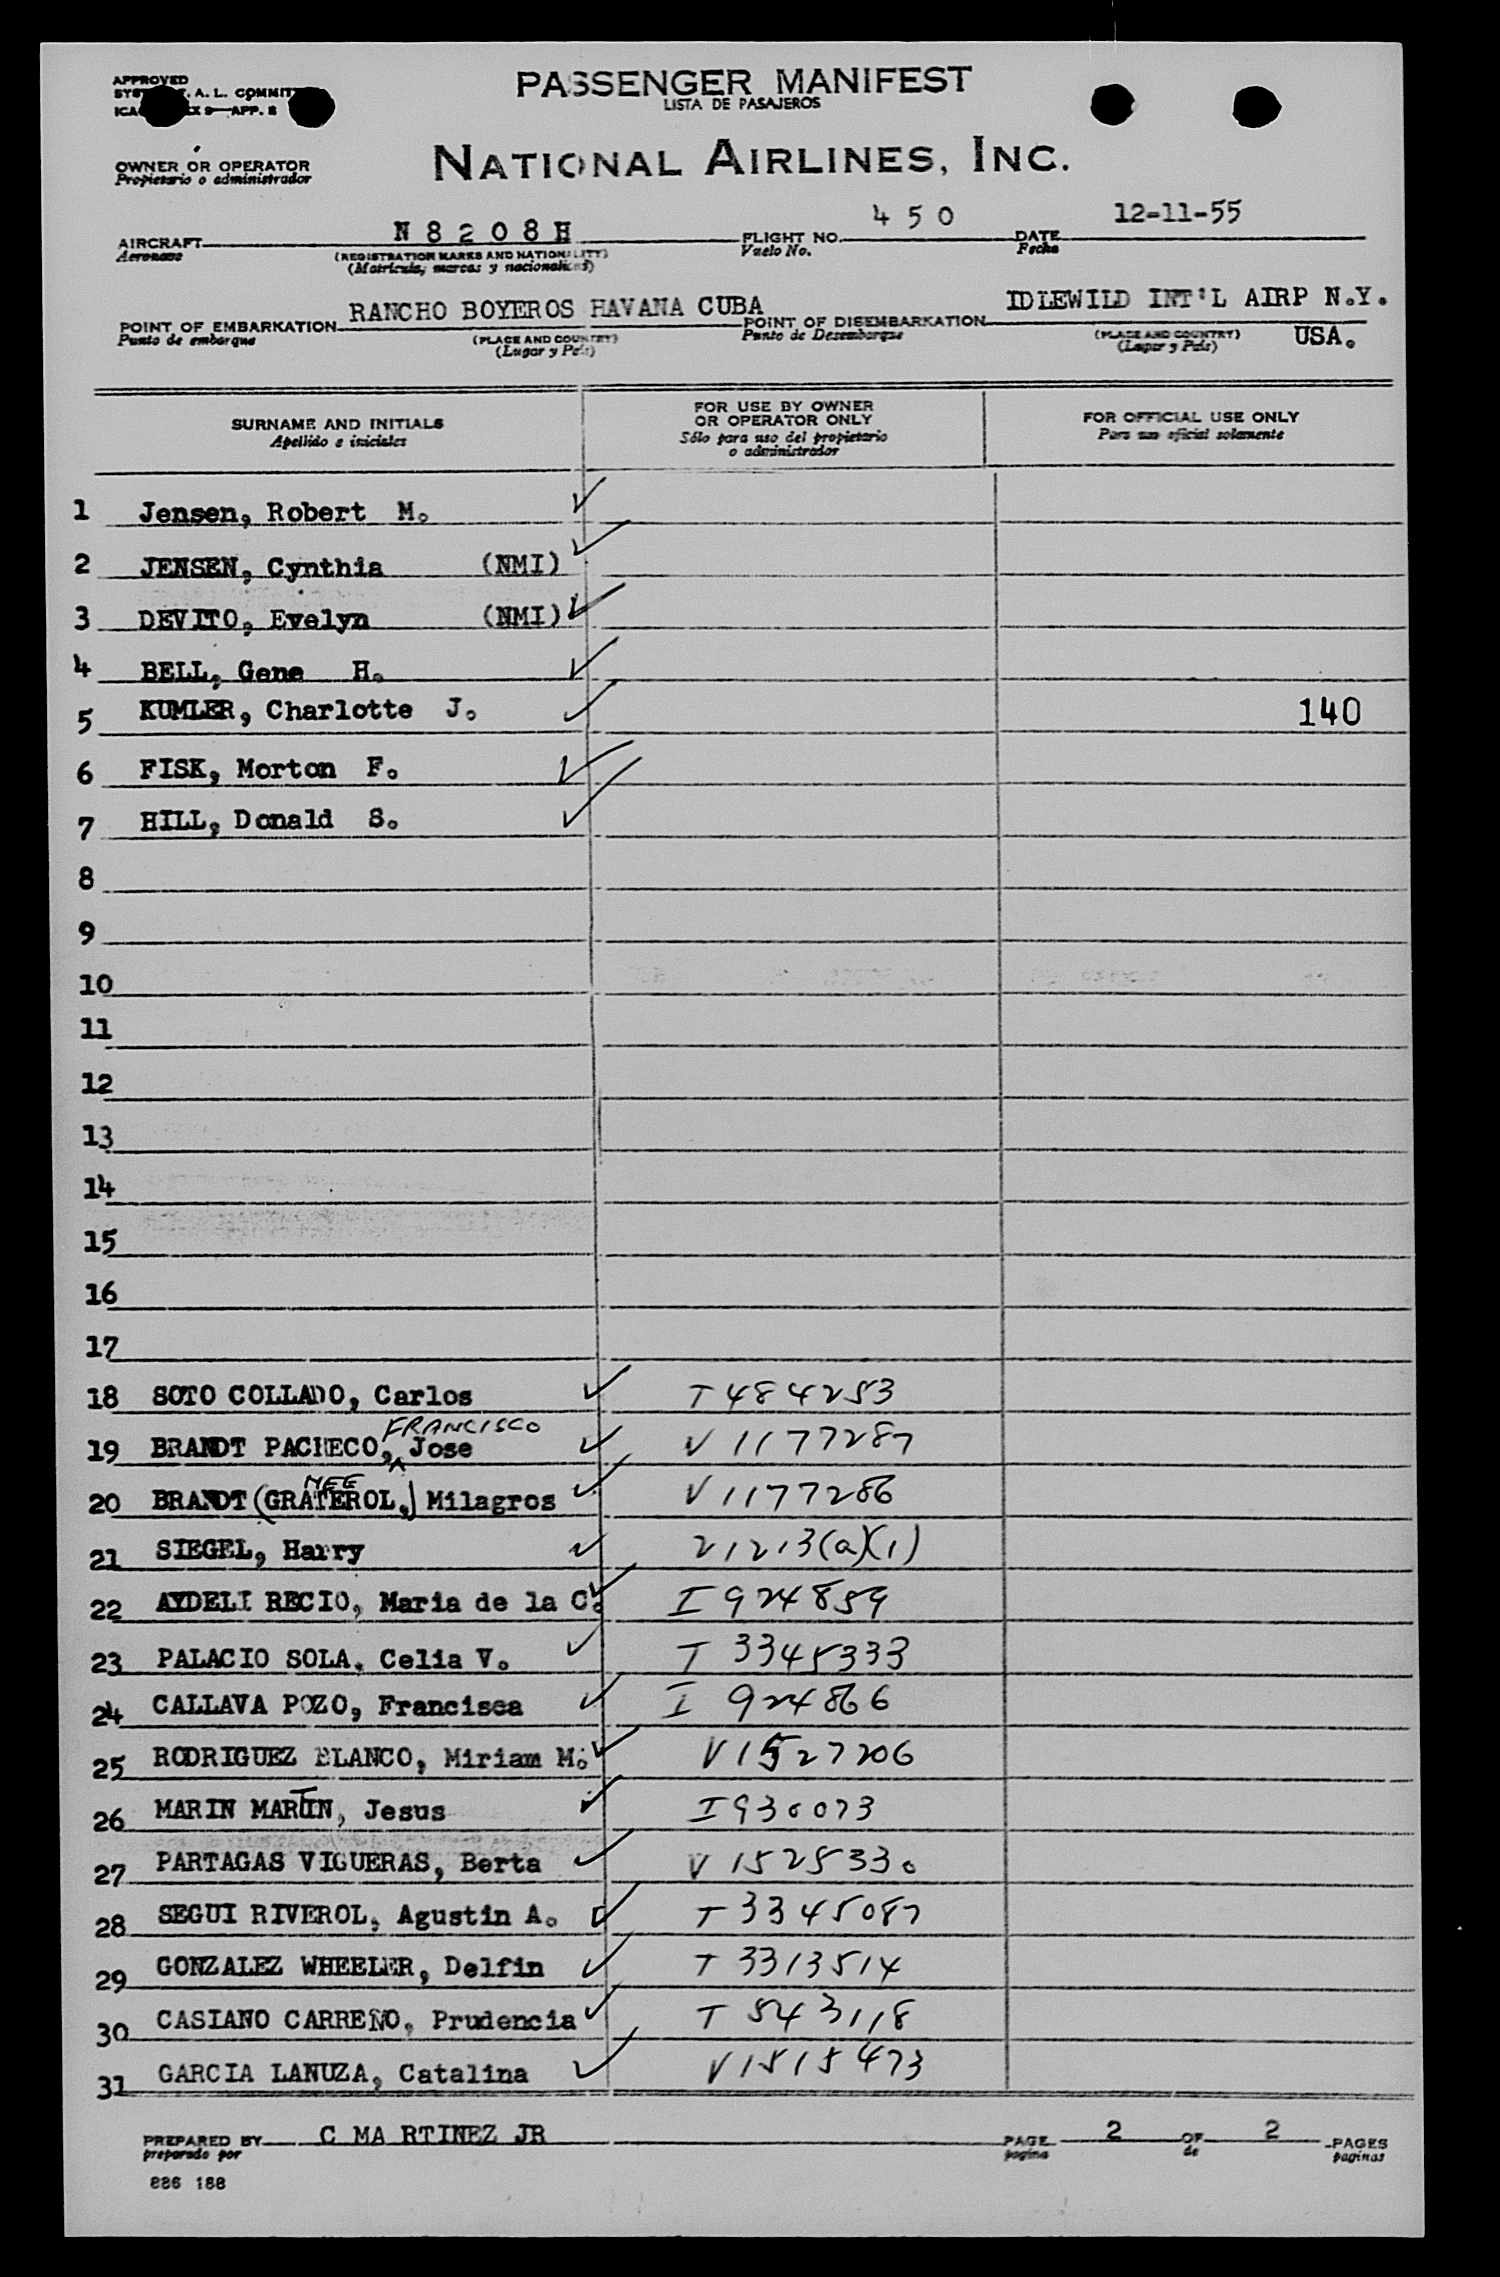 APPROVED
A. L. COMMIT
APP. 2
PASSENGER MANIFEST
LISTA DE PASAJEROS
OWNER OR OPERATOR
Propietario o administrador
NATIONAL AIRLINES, INC.
AIRCRAFT N 8 2 0 8 H FLIGHT NO. 4 5 0 DATE 12-11-55
Aeronave (REGISTRATION MARKS AND NATIONALITY) Vuelo No. Fecha
(Matricula, marcas y nacionalidad)
POINT OF EMBARKATION RANCHO BOYEROS HAVANA CUBA POINT OF DISEMBARKATION IDLEWILD INT'L AIRP N.Y.
Punto de embarque (PLACE AND COUNTRY) Punto de Desembarque (PLACE AND COUNTRY) USA.
(Lugar y País) (Lugar y País)
SURNAME AND INITIALS FOR USE BY OWNER OR OPERATOR ONLY FOR OFFICIAL USE ONLY
Apellido e iniciales Sólo para uso del propietario o administrador Para uso oficial solamente
1 Jensen, Robert M.
2 JENSEN, Cynthia (NMI)
3 DEVITO, Evelyn (NMI)
4 BELL, Gene H.
5 KUMLER, Charlotte J. 140
6 FISK, Morton F.
7 HILL, Donald S.
8
9
10
11
12
13
14
15
16
17
18 SOTO COLLADO, Carlos T 484253
19 BRANDT PACHECO, FRANCISCO Jose V 1177287
20 BRANDT (NEE GRATEROL,) Milagros V 1177286
21 SIEGEL, Harry 21213(a)(1)
22 AYDELI RECIO, Maria de la C. I 924859
23 PALACIO SOLA, Celia V. T 3345333
24 CALLAVA POZO, Francisca I 924866
25 RODRIGUEZ BLANCO, Miriam M. V 1527206
26 MARIN MARTIN, Jesus I 930073
27 PARTAGAS VIGUERAS, Berta V 1525330
28 SEGUI RIVEROL, Agustin A. T 3345087
29 GONZALEZ WHEELER, Delfin T 3313514
30 CASIANO CARREÑO, Prudencia T 543118
31 GARCIA LANUZA, Catalina V 1515473
PREPARED BY C MA RTINEZ JR PAGE 2 OF 2 PAGES
preparado por pagina de paginas
886 188